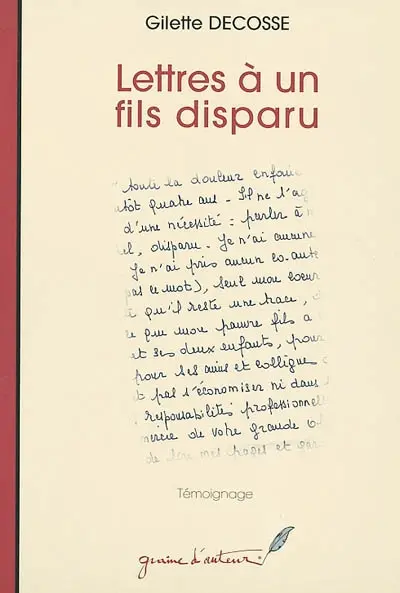 Gilette DECOSSE
Lettres à un
fils disparu
"toute la douleur enfouie
tôt quatre ans - Il ne s'ag
d'une nécessité : parler à
el, disparu - Je n'ai aucune
Je n'ai pris aucun co.aute
pas ce mot), seul mon coeur
qu'il reste une trace,
ce que mon pauvre fils a
et ses deux enfants, pour
pour ses amis et collègue
t pas s'économiser ni dans
responsabilités professionnelle
mercie de votre grande
de lire mes pages et
Témoignage
graine d'auteur